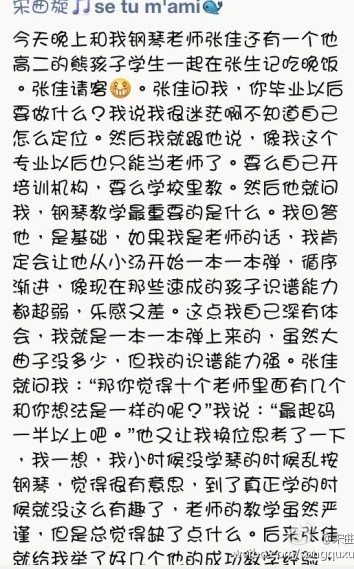 宋曲旋🎵se tu m'ami🐳
今天晚上和我钢琴老师张佳还有一个他
高二的熊孩子学生一起在张生记吃晚饭
。张佳请客😁。张佳问我，你毕业以后
要做什么？我说我很迷茫啊不知道自己
怎么定位。然后我就跟他说，像我这个
专业以后也只能当老师了。要么自己开
培训机构，要么学校里教。然后他就问
我，钢琴教学最重要的是什么。我回答
他，是基础，如果我是老师的话，我肯
定会让他从小汤开始一本一本弹，循序
渐进，像现在那些速成的孩子识谱能力
都超弱，乐感又差。这点我自己深有体
会，我就是一本一本弹上来的，虽然大
曲子没多少，但我的识谱能力强。张佳
就问我：“那你觉得十个老师里面有几个
和你想法是一样的呢？”我说：“最起码
一半以上吧。”他又让我换位思考了一下
，我一想，我小时候没学琴的时候乱按
钢琴，觉得很有意思，到了真正学的时
候就没这么有趣了，老师的教学虽然严
谨，但是总觉得缺了点什么。后来张佳
就给我举了好几个他的成功教学经验